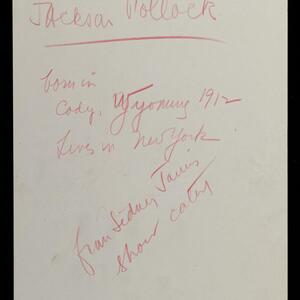 Jackson Pollock
born in
Cody, Wyoming 1912
Lives in New York
from Sidney Janis
show catlg